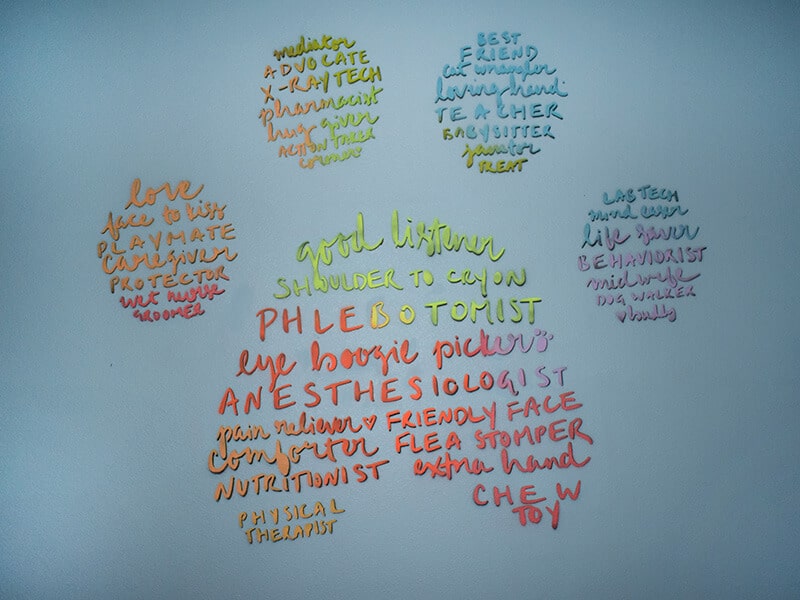 love
face to kiss
PLAYMATE
caregiver
PROTECTOR
wet nurse
GROOMER
mediator
ADVOCATE
X-RAY TECH
pharmacist
hug giver
ACTION TAKER
BEST
FRIEND
cat wrangler
loving hand
TEACHER
BABYSITTER
janitor
TREAT
LAB TECH
mind easer
life saver
BEHAVIORIST
midwife
DOG WALKER
♥ bully
good listener
SHOULDER TO CRY ON
PHLEBOTOMIST
eye boogie picker
ANESTHESIOLOGIST
pain reliever ♥ FRIENDLY FACE
comforter FLEA STOMPER
NUTRITIONIST extra hand
PHYSICAL
THERAPIST
CHEW
TOY